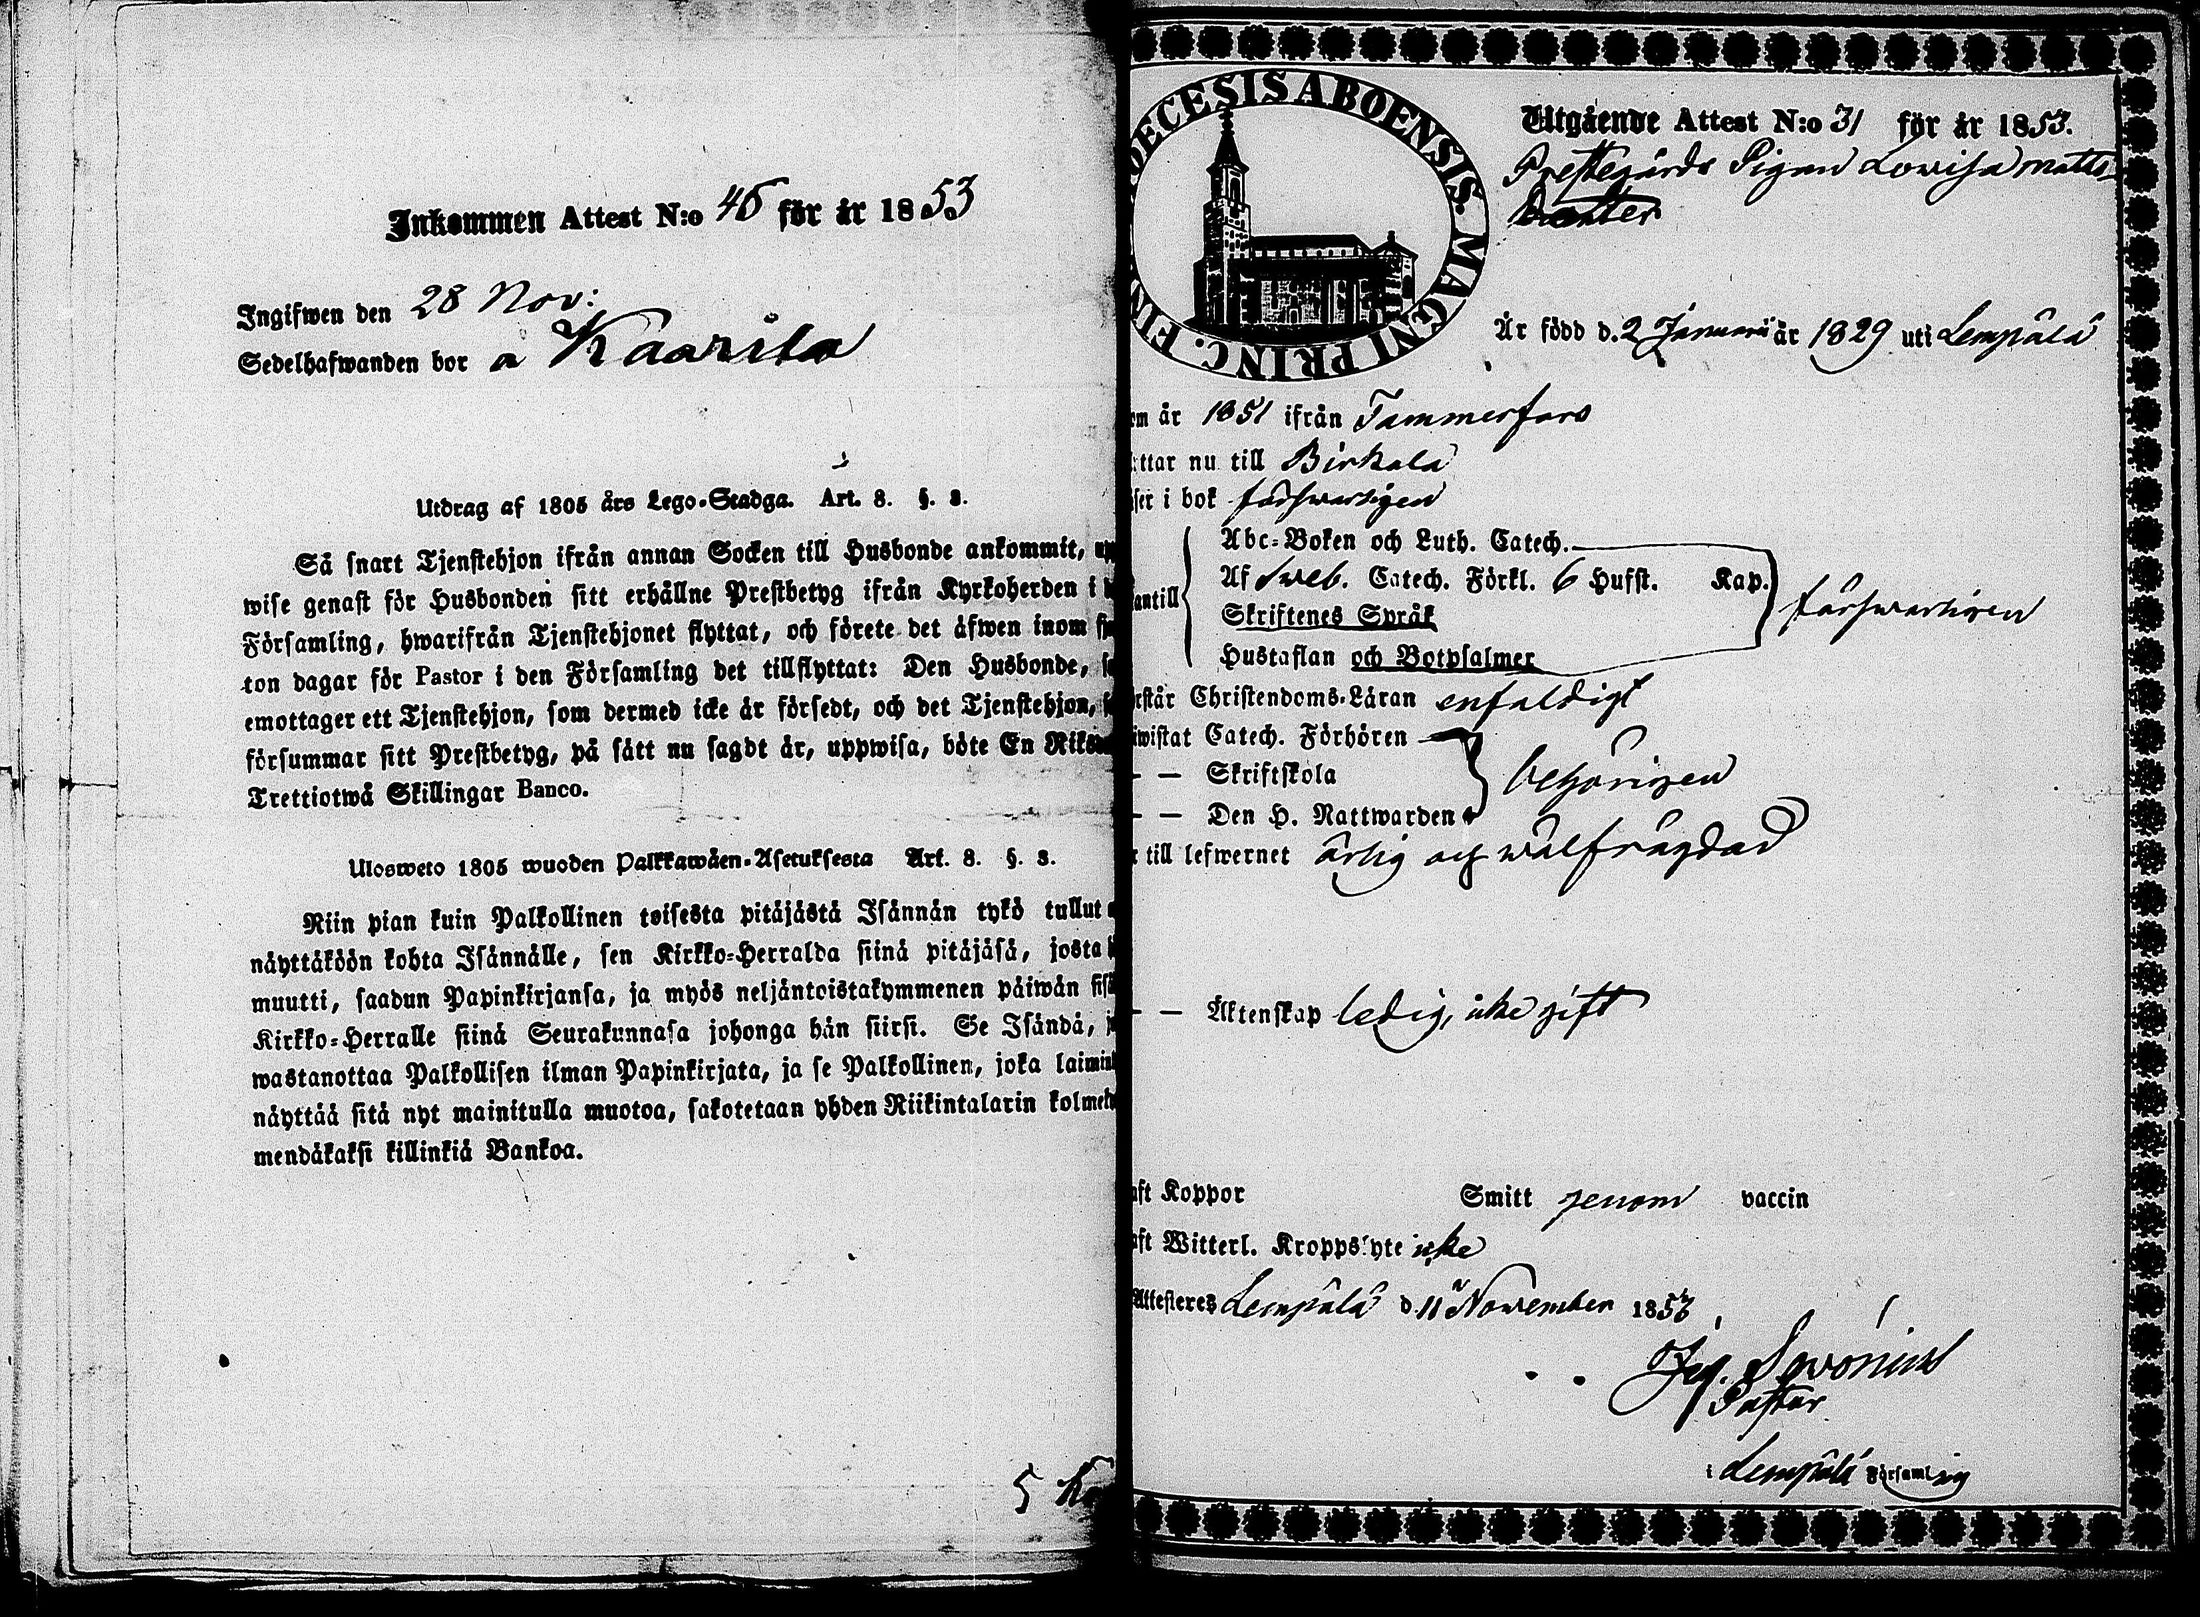 Inkommen Attest N:o 46 för år 1853
Ingifwen den 28 Nov:
Sedelhafwanden bor a Kaarila
Utdrag af 1805 års Lego-Stadga. Art. 8. §. 3.
Så snart Tjenstehjon ifrån annan Socken till Husbonde ankommit,
wise genast för Husbonden sitt erhållne Prestbetyg ifrån Kyrkoherden i
Församling, hwarifrån Tjenstehjonet flyttat, och förete det äfwen inom
ton dagar för Pastor i den Församling det tillflyttat: Den Husbonde,
emottager ett Tjenstehjon, som dermed icke är försedt, och det Tjenstehjon,
försummar sitt Prestbetyg, på sätt nu sagdt är, uppwisa, böte En
Trettiotwå Skillingar Banco.
Ulosweto 1805 wuoden Palkkawäen-Asetuksesta Art. 8. §. 3.
Niin pian kuin Palkollinen toisesta pitäjästä Isännän tykö tullut
näyttäköön kohta Isännälle, sen Kirkko-Herralda siinä pitäjäsä, josta
muutti, saadun Papinkirjansa, ja myös neljäntoistakymmenen päiwän
Kirkko-Herralle siinä Seurakunnasa johonga hän siirsi. Se Isändä,
wastanottaa Palkollisen ilman Papinkirjata, ja se Palkollinen, joka
näyttää sitä nyt mainitulla muotoa, sakotetaan yhden Riikintalarin
mendäkaksi killinkiä Bankoa.
5
DECESIS ABOENSIS. MAGNI PRINC. FIN
Utgående Attest N:o 31 för år 1853.
Prestegårds Pigan Lovisa Matts
Dotter
Är född d. 2 Januari år 1829 uti Lempälä
om år 1851 ifrån Tammerfors
ttar nu till Birkala
ser i bok förswarligen
Abc-Boken och Luth. Catech.
Af Sweb. Catech. Förkl. 6 Hufst. Kap.
antill förswarligen
Skriftenes Språk
Hustaflan och Botpsalmer
rstår Christendoms-Läran enfaldigt
iwistat Catech. Förhören
— — Skriftskola behörigen
— — Den H. Nattwarden
r till lefwernet ärlig och wälfrägdad
— — Äktenskap ledig, icke gift
aft Koppor Smitt genom vaccin
aft Witterl. Kroppslyte icke
Attesteres Lempälä d. 11 November 1853
Pastor
i Lempälä Församling